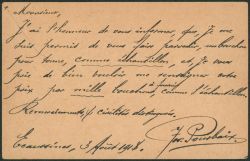 Monsieur,
J'ai l'honneur de vous informer, que je me
suis permis de vous faire parvenir, un bouchon
pour tonne, comme échantillon, et, je vous
prie de bien vouloir me renseigner votre
prix par mille bouchons, comme l'échantillon
à fournir
Recevez, civilités distinguées,
Ecaussines, 3 Août 1918.